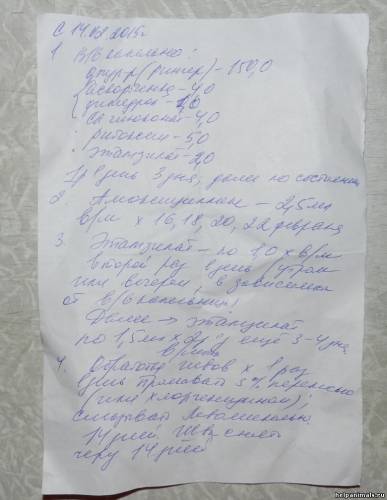 С 14.02.2015г
1. В/В капельно:
физ. р-р (Рингер) – 150,0
аскорбинка – 4,0
димедрол – 1,0
Са глюконат – 4,0
рибоксин – 5,0
этамзилат – 2,0
1 р в день 3 дня, далее по состоянию
2. Амоксициллин – 2,5 мл
в/м х 16, 18, 20, 22 февраля
3. Этамзилат – по 1,0 х в/м
второй раз в день (утром
или вечером, в зависимости
от в/в капельниц)
Далее → этамзилат
по 1,5 мл х 2 р/д ещё 3-4 дня
в/мыш
4. Обработка швов х 1 раз
в день промывать 3% перекисью
(или хлоргексидином);
смазывать Левомеколью
14 дней. Швы снять
через 14 дней
helpanimals.ru